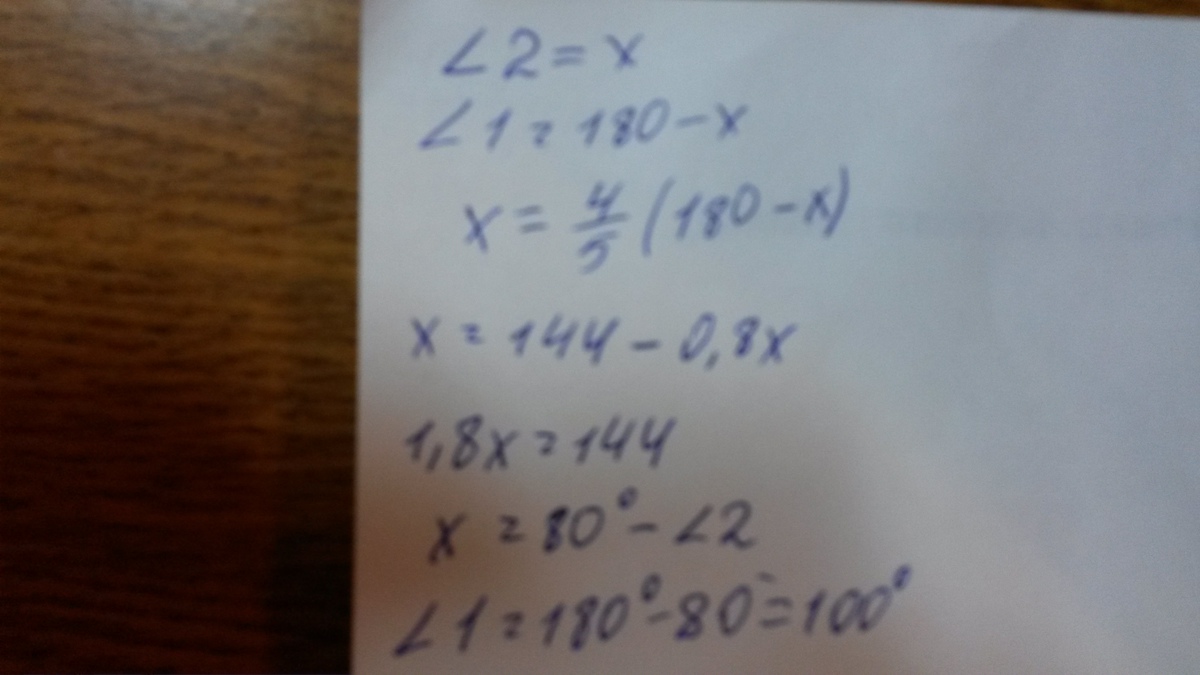 ∠2 = x
∠1 = 180 - x
x = 4/5 (180 - x)
x = 144 - 0,8x
1,8x = 144
x = 80° - ∠2
∠1 = 180° - 80° = 100°